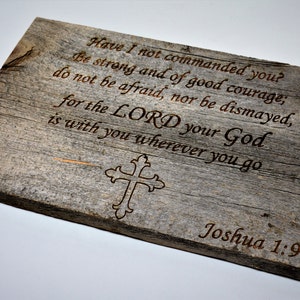 Have I not commanded you?
Be strong and of good courage,
do not be afraid, nor be dismayed,
for the LORD your God
is with you wherever you go
Joshua 1:9